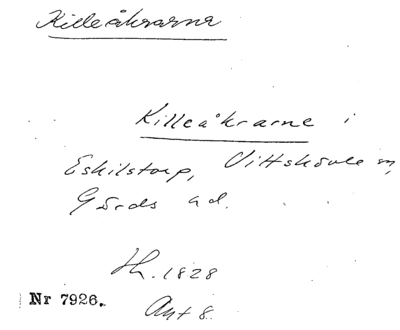 Killeåkrarna
Killeåkrarne i
Eskilstorp, Vittskövle sn,
Gärds hd.
Lh. 1828
Akt 8.
Nr 7926.